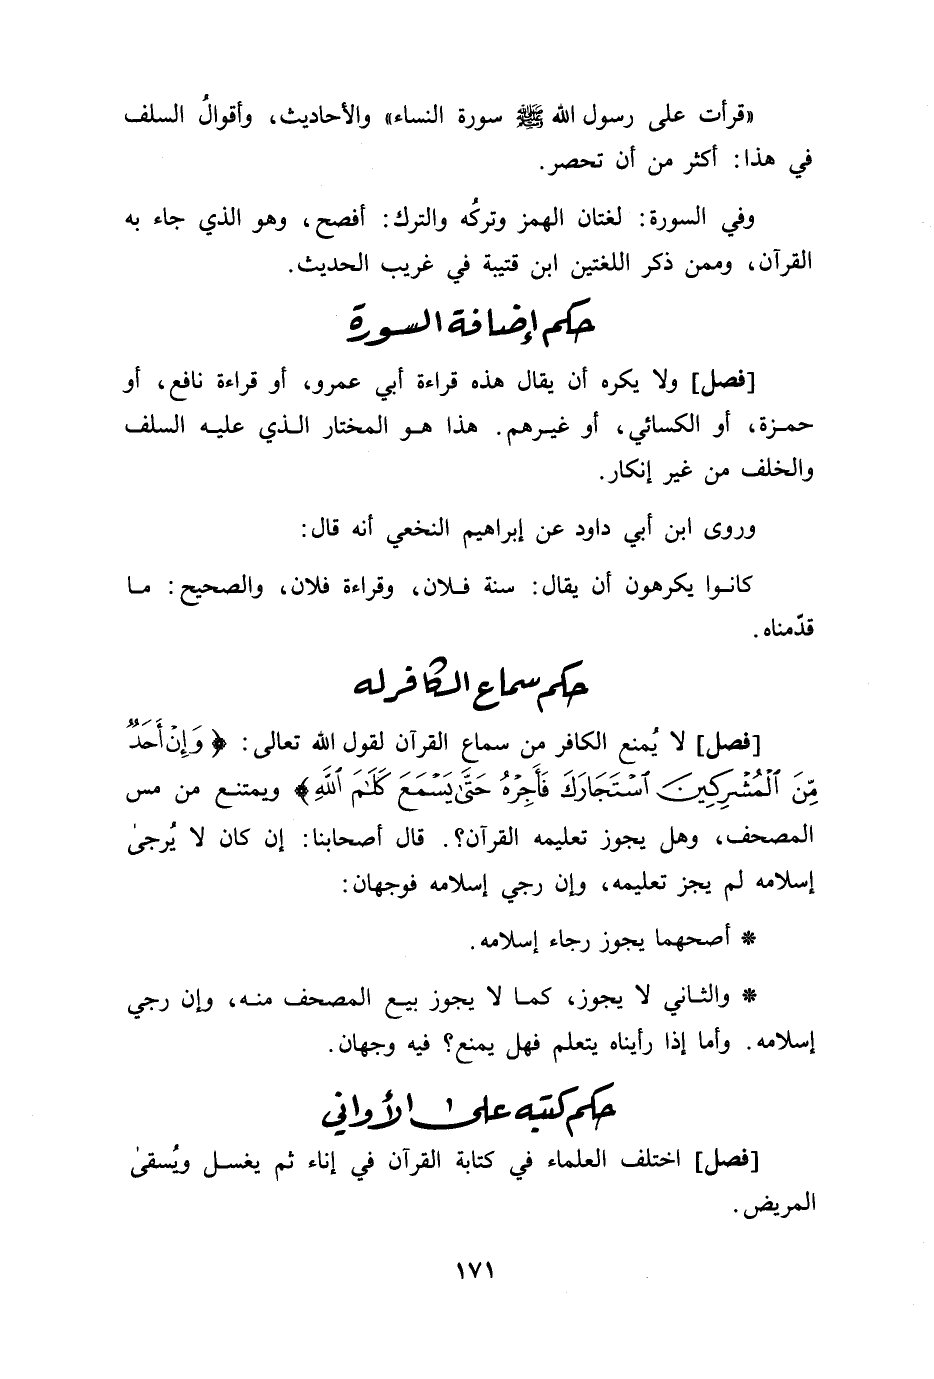 «قرأت على رسول الله ﷺ سورة النساء» والأحاديث، وأقوالُ السلف
في هذا: أكثر من أن تحصر.
وفي السورة: لغتان الهمز وتركُه والترك: أفصح، وهو الذي جاء به
القرآن، وممن ذكر اللغتين ابن قتيبة في غريب الحديث.
حكم إضافة السورة
[فصل] ولا يكره أن يقال هذه قراءة أبي عمرو، أو قراءة نافع، أو
حمزة، أو الكسائي، أو غيرهم. هذا هو المختار الذي عليه السلف
والخلف من غير إنكار.
وروى ابن أبي داود عن إبراهيم النخعي أنه قال:
كانوا يكرهون أن يقال: سنة فلان، وقراءة فلان، والصحيح: ما
قدّمناه.
حكم سماع الكافر له
[فصل] لا يُمنع الكافر من سماع القرآن لقول الله تعالى: ﴿وَإِنۡ أَحَدٞ
مِّنَ ٱلۡمُشۡرِكِينَ ٱسۡتَجَارَكَ فَأَجِرۡهُ حَتَّىٰ يَسۡمَعَ كَلَٰمَ ٱللَّهِ﴾ ويمتنع من مس
المصحف، وهل يجوز تعليمه القرآن؟. قال أصحابنا: إن كان لا يُرجىٰ
إسلامه لم يجز تعليمه، وإن رجي إسلامه فوجهان:
* أصحهما يجوز رجاء إسلامه.
* والثاني لا يجوز، كما لا يجوز بيع المصحف منه، وإن رجي
إسلامه. وأما إذا رأيناه يتعلم فهل يمنع؟ فيه وجهان.
حكم كتبه على الأواني
[فصل] اختلف العلماء في كتابة القرآن في إناء ثم يغسل ويُسقىٰ
المريض.
١٧١